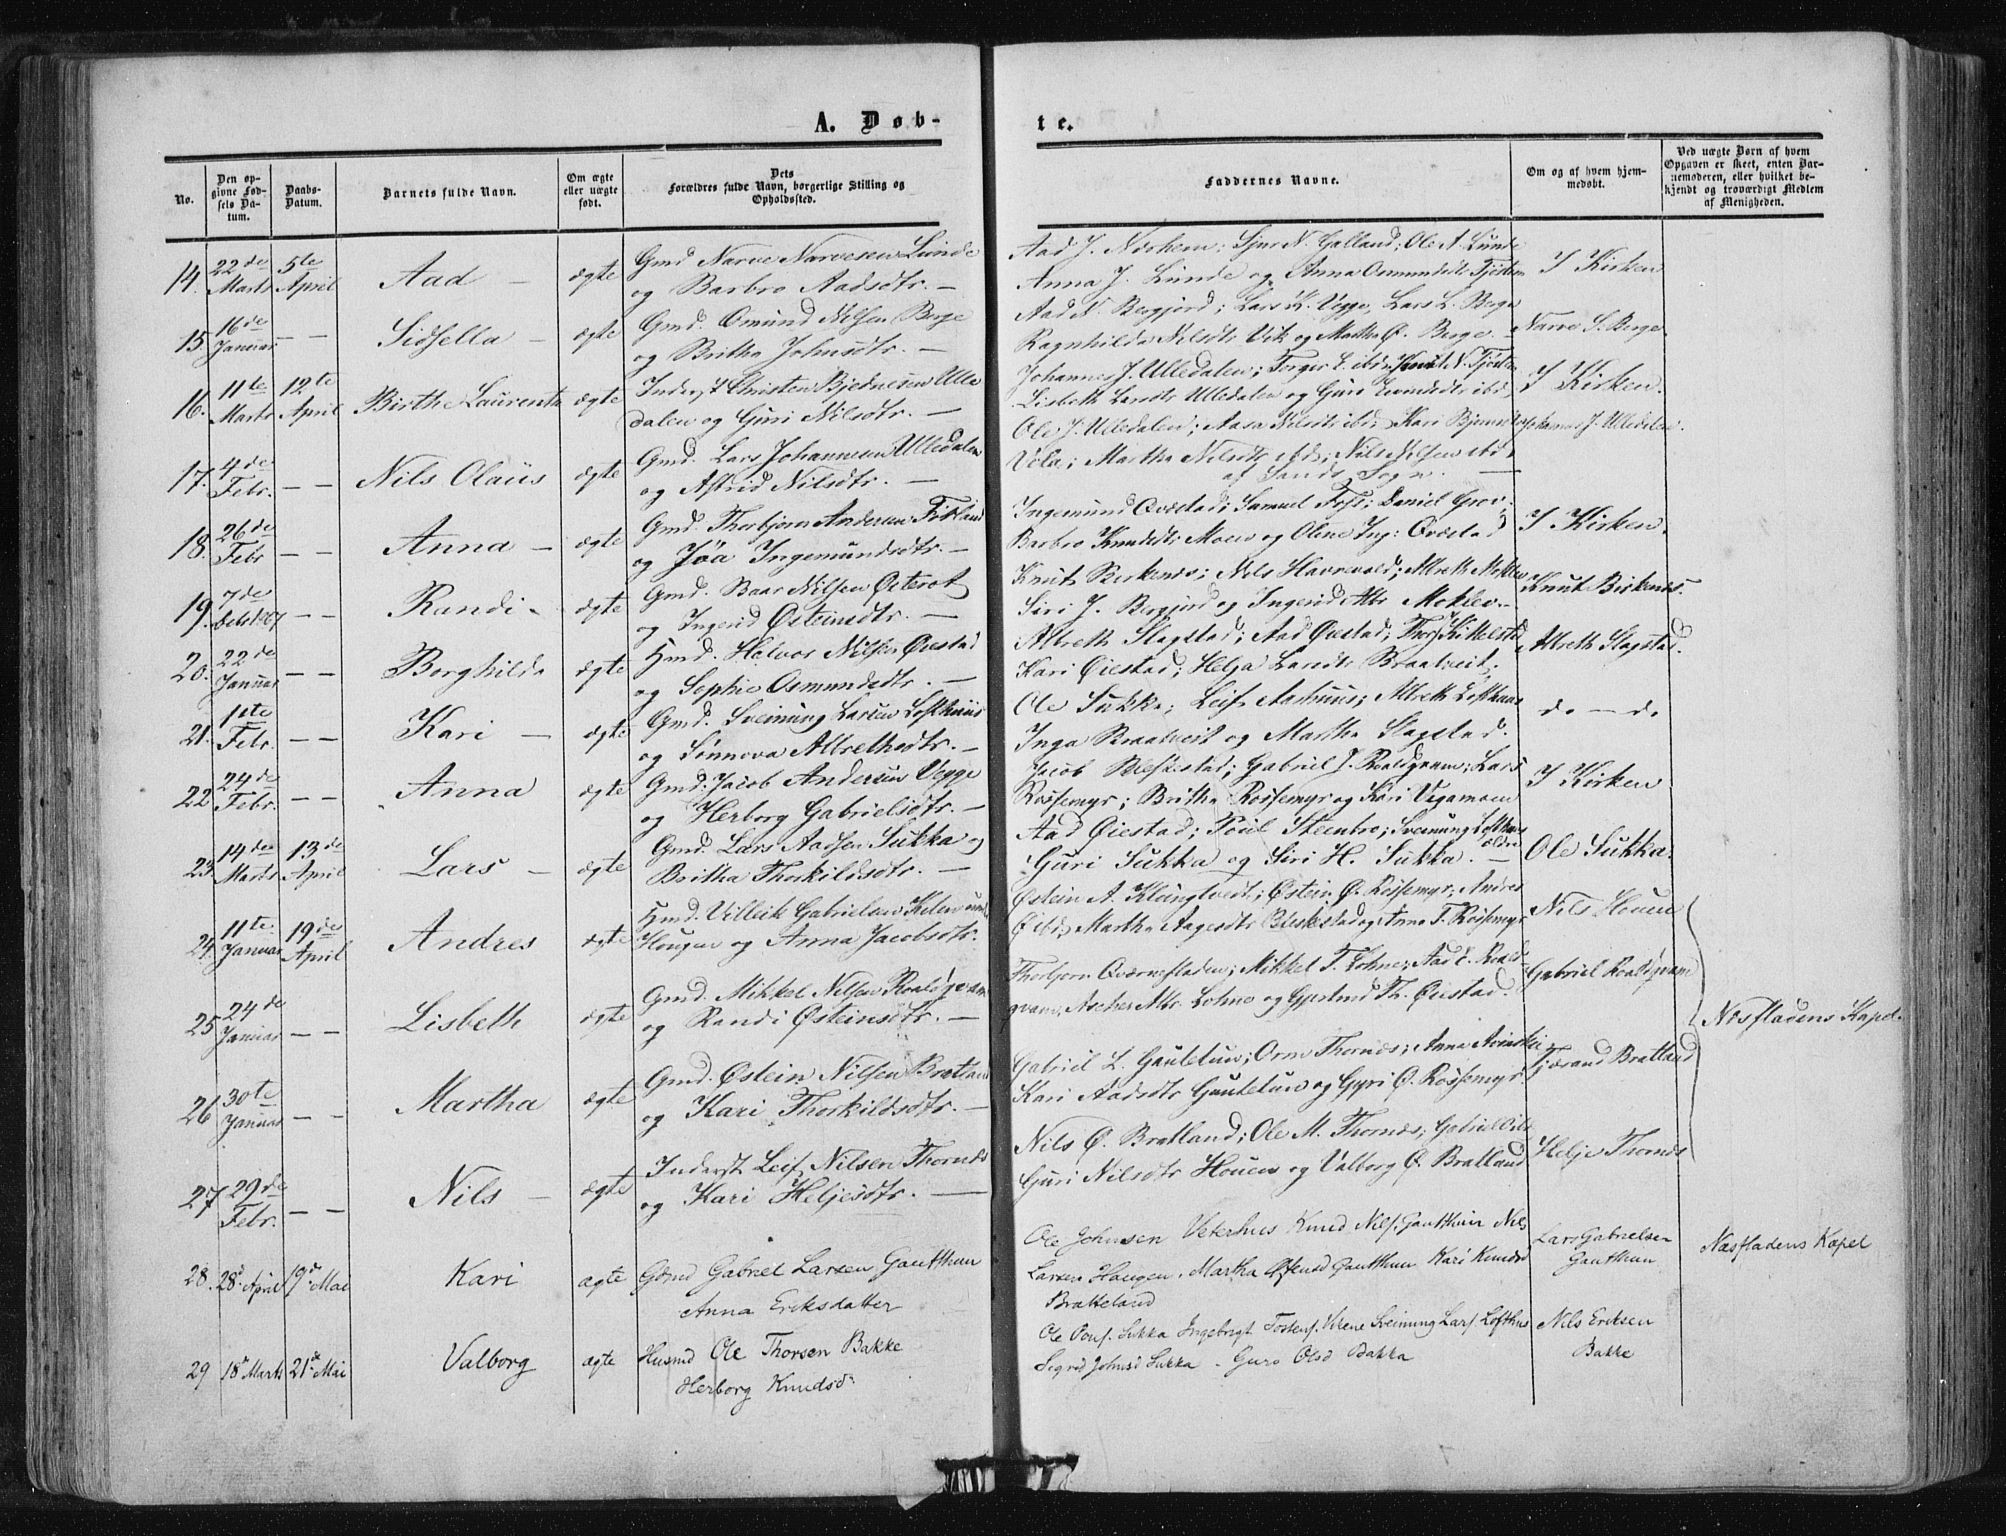 A. Døb-
te.
No.
Den op-
givne Fød-
sels Da-
tum.
Daabs-
Datum.
Barnets fulde Navn.
Om ægte
eller uægte
født.
Dets
Forældres fulde Navn, borgerlige Stilling og
Opholdssted.
Faddernes Navne.
Om og af hvem hjem-
medøbt.
Ved uægte Børn af hvem
Opgaven er skeet, enten Bar-
nemoderen, eller hvilket be-
kjendt og troværdigt Medlem
af Menigheden.
14. 22de Marts 5te April Aad — ægte Gmd Narve Narvesen Lunde
og Barbro Aadsdtr. —
Aad J. Næshem; Sjur N. Galland; Ole A. Lunde
Anna J. Lunde og Anna Osmundsdtr
I Kirken
15 16de Januar — — Sidsella — ægte Gmd. Omund Nilsen Berge
og Britha Johnsdtr. —
Aad N. Bergjord; Lars K. Vegge, Lars L. Berge
Ragnhilda Nilsdtr Vik og Martha Ø. Berge —
Narve S. Berge
16. 11te Marts 12te April Birthe Laurentia ægte Inderst Christen Bjednesen Ulle
dalen og Guri Nilsdtr. —
Johannes J. Ulledalen; Torger
Lisbeth Larsdtr Ulledalen og Guri
I Kirken.
17. 4de Febr. — — Nils Olaüs ægte Gmd. Lars Johannesen Ulledalen
og Astrid Nilsdtr. —
Ole J. Ulledalen; Aasa Nilsdtr ibd; Kari
Vola; Martha Nilsdtr ibd; Nils Nilsen ibd
af Sands Sogn. —
Johannes J. Ulledalen.
18. 26de Febr — — Anna — ægte Gmd. Thorbjørn Andersen Fitland
og Jóa Ingemundsdtr. —
Ingemund Qvæstad; Samuel Foss; Daniel Grov;
Barbro Knudsdtr Moen og Oline Ing: Qvæstad
I Kirken.
19. 7de — — Randi — ægte Gmd. Baar Nilsen Østerot
og Ingerid Østeinsdtr. —
Knut Birkenes; Nils Havrevold; Albreth Moklev
Siri J. Bergjord og Ingerid Albr Moklev. —
Knut Birkenes.
20. 22de Januar — — Borghilda ægte Hmd. Helvor Nilsen Øiestad
og Sophie Osmundsdtr. —
Albreth Slagstad; Aad Øiestad;
Kari Øiestad; Helga Larsdtr Braatveit;
Albreth Slagstad.
21. 1ste Febr. — — Kari — ægte Gmd. Sveinung Larsen Lofthuus
og Sønnova Albrethsdtr. —
Ole Sukka; Leif Aarhuus; Albreth Lofthuus
Inga Braatveit og Martha Slagstad.
do — do
22 24de Febr. — — Anna ægte Gmd. Jacob Andersen Vegge
og Herborg Gabrielsdtr. —
Jacob Bleskestad; Gabriel J. Roaldqvam; Lars
Rossemyr; Britha Rossemyr og Kari Vegamoen
I Kirken
23. 14de Marts 13de April Lars — ægte Gmd. Lars Aadsen Sukka og
Britha Thorkildsdtr. —
Aad Øiestad; Poul Steenbro; Sveinung Lofthuus
Guri Sukka og Siri H. Sukka. — ældre
Ole Sukka.
24. 11te Januar 19de April Andres ægte Hmd. Villeik Gabrielsen
Hougen og Anna Jacobsdtr.
Østein A. Klungtveit; Østein Ø. Rossemyr; Andres
Ø ibd; Martha Aagesdtr Bleskestad og Anna T. Rossemyr
Nils Houen
25 24de Januar — — Lisbeth ægte Gmd. Mikkel Nilsen Roaldqvam
og Randi Østeinsdtr. —
Thorbjørn Qværnefladen; Mikkel T. Lohne; Aad E. Roald-
qvam; Ascher Albr. Lohne og Gjertrud Th. Øiestad.
Gabriel Roaldqvam
Næsfladens Kapel.
26 30te Januar — — Martha ægte Gmd. Østein Nilsen Bratland
og Kari Thorkildsdtr. —
Gabriel L. Gautetun; Orm Thornes; Anna
Kari Aadsdtr Gautetun og Gyri Ø. Rossemyr
Tjærand Bratland
27 29de Febr. — — Nils — ægte Inderst Leif Nilsen Thornes
og Kari Heljesdtr. —
Nils Ø. Bratland; Ole M. Thornes; Gabriel
Guri Nilsdtr Houen og Valborg Ø. Bratland
Helje Thornes
28. 28d April 19d Mai Kari ægte Gmd Gabriel Larsen Gautthun
Anna Eriksdatter
Ole Johnsen Veterhus Knud Nils. Gautthun Nils
Larsen Haugen. Martha Gautthun Kari Knudsd
Bratteland
Lars Gabrielsen
Gautthun
Næsfladens Kapel
29 18d Marts 21de Mai Valborg ægte Husmd Ole Thorsen Bakke
Herborg Knudsdr
Ole Sukka Ingebrigt Sveinung Lars. Lofthus
Sigrid Johnsd Sukka. Guro Olsd Bakka
Nils Eriksen
Bakke